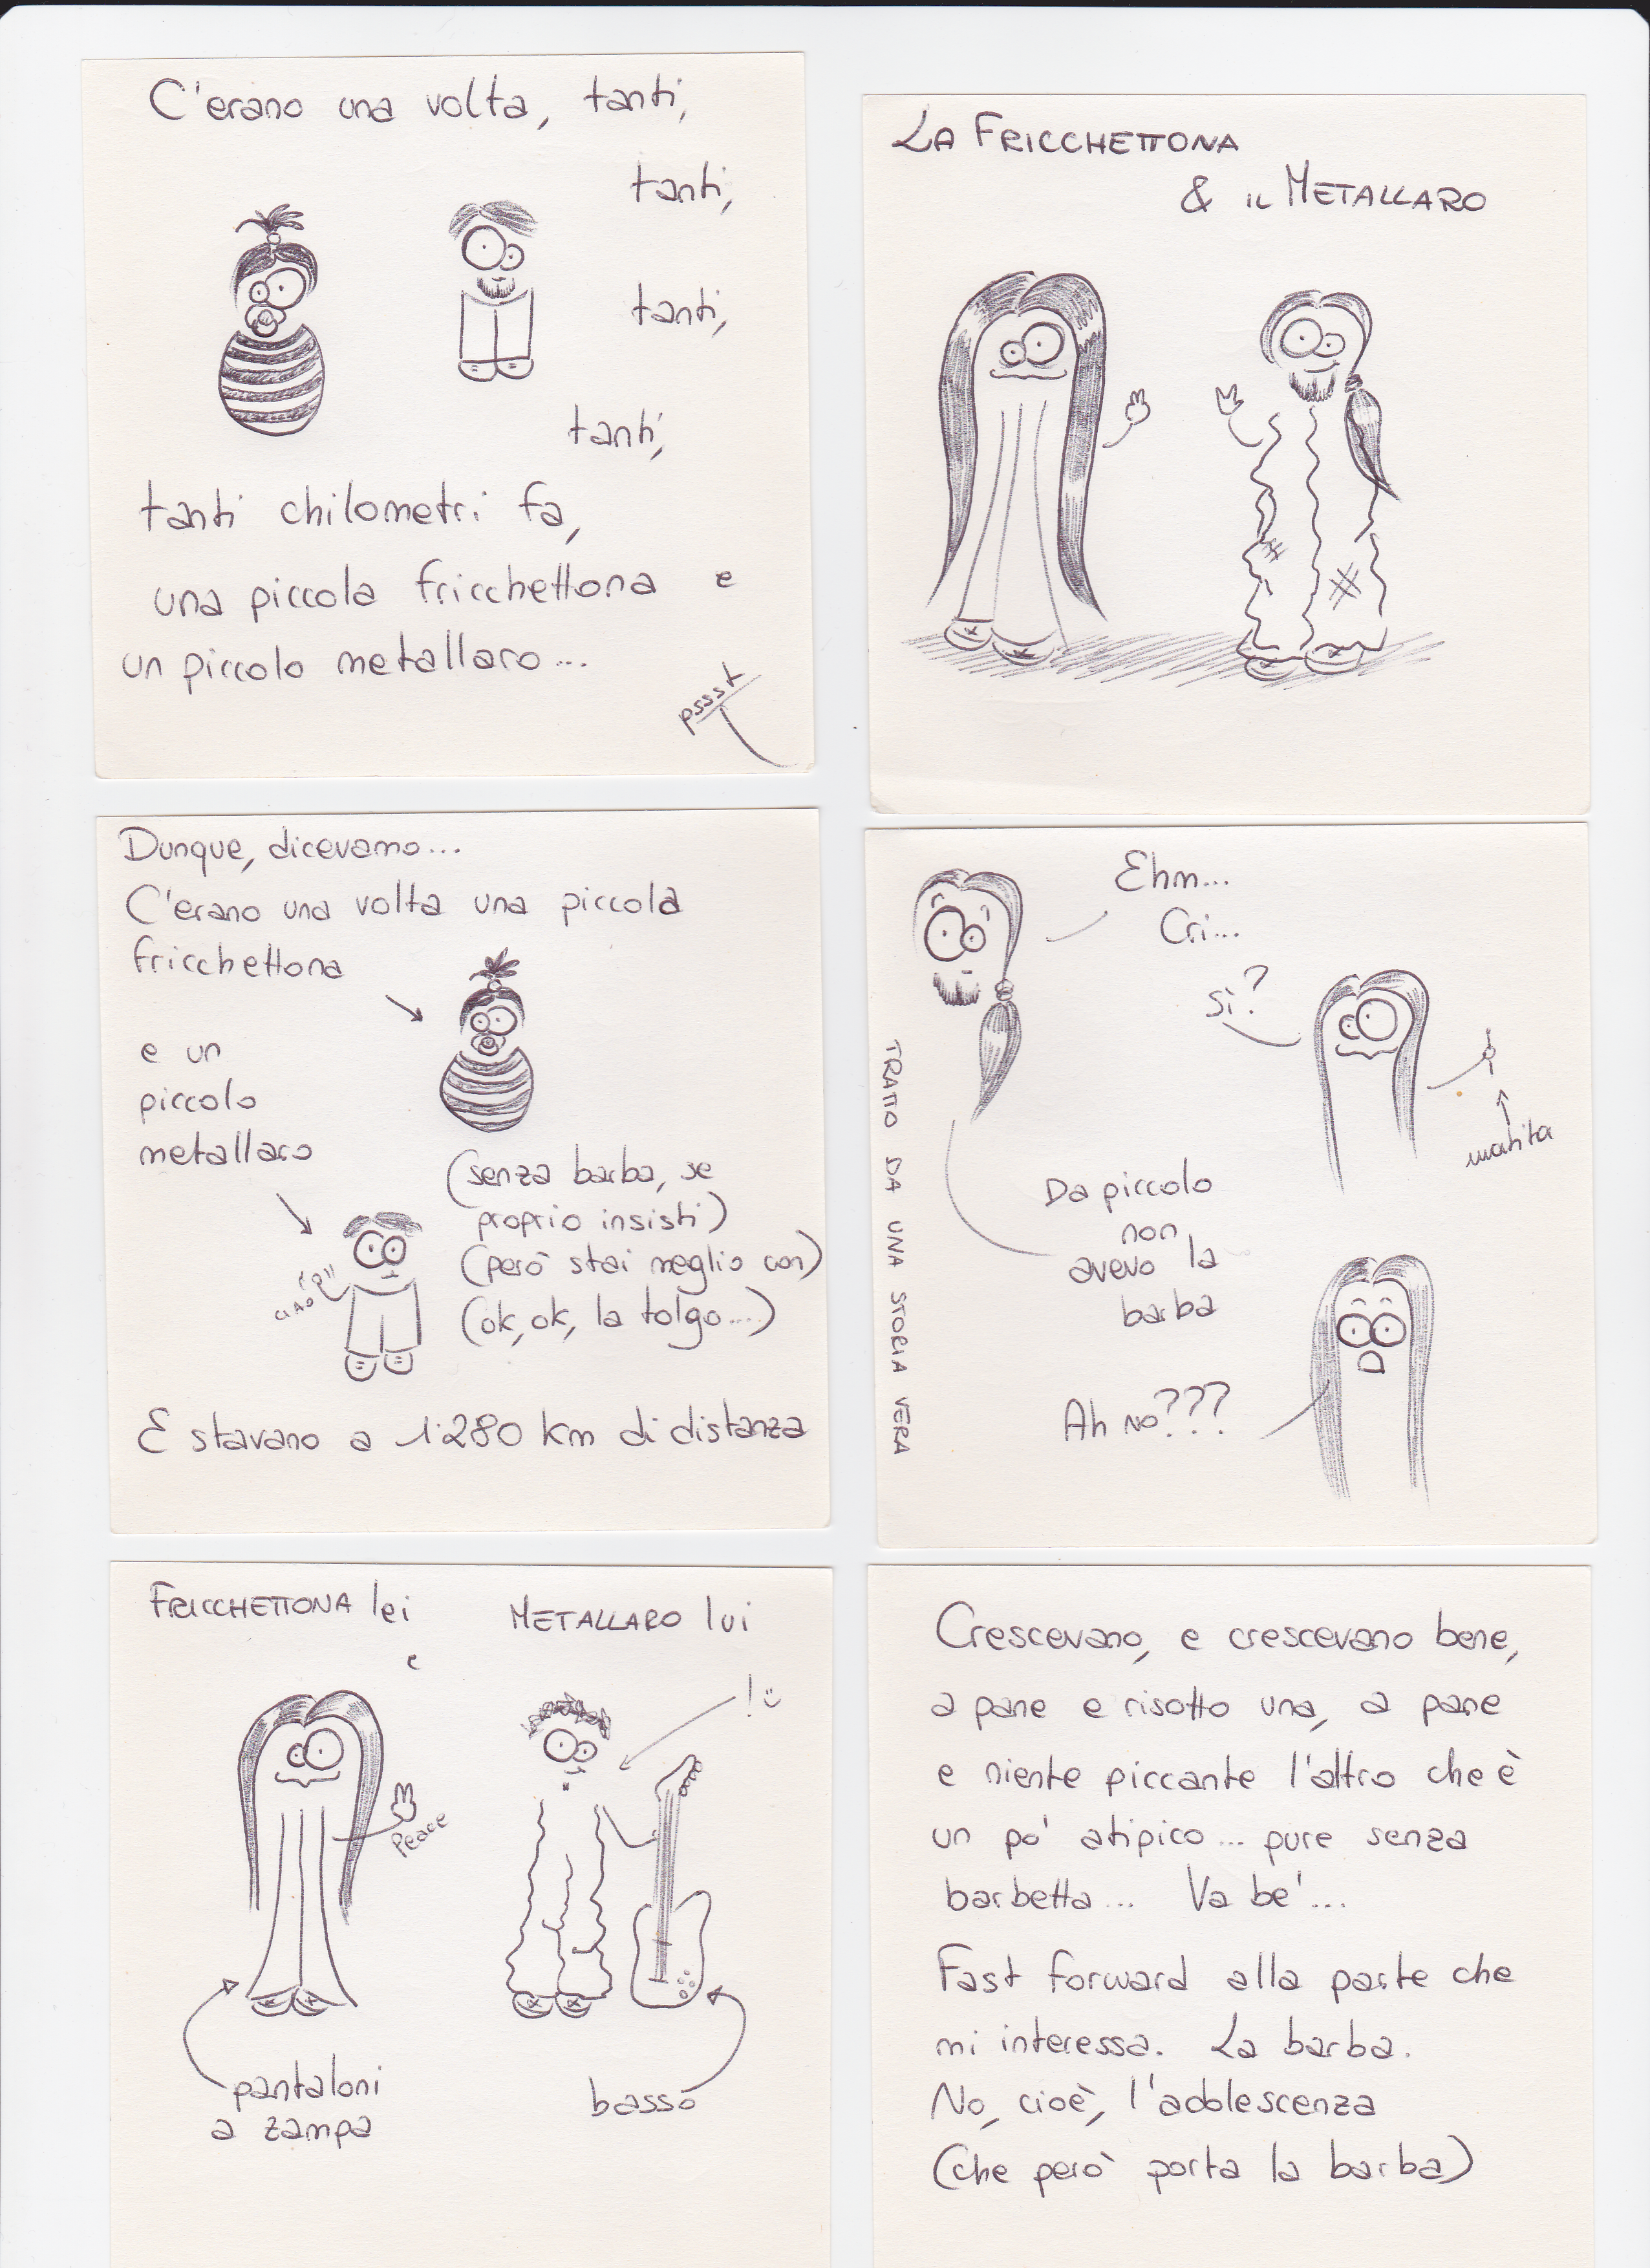 C'erano una volta, tanti,
tanti,
tanti,
tanti,
tanti chilometri fa,
una piccola fricchettona e
un piccolo metallaro...
pssst
LA FRICCHETTONA
& IL METALLARO
Dunque, dicevamo...
C'erano una volta una piccola
fricchettona
e un
piccolo
metallaro
(senza barba, se
proprio insisti)
(però stai meglio con)
(ok, ok, la tolgo...)
ciao
E stavano a 1280 km di distanza
Ehm...
Cri...
sì?
matita
Da piccolo
non
avevo la
barba
Ah no???
TRATTO DA UNA STORIA VERA
FRICCHETTONA lei
e
METALLARO lui
!
Peace
pantaloni
a zampa
basso
Crescevano, e crescevano bene,
a pane e risotto una, a pane
e niente piccante l'altro che è
un po' atipico... pure senza
barbetta... Va be'...
Fast forward alla parte che
mi interessa. La barba.
No, cioè, l'adolescenza
(che però porta la barba)